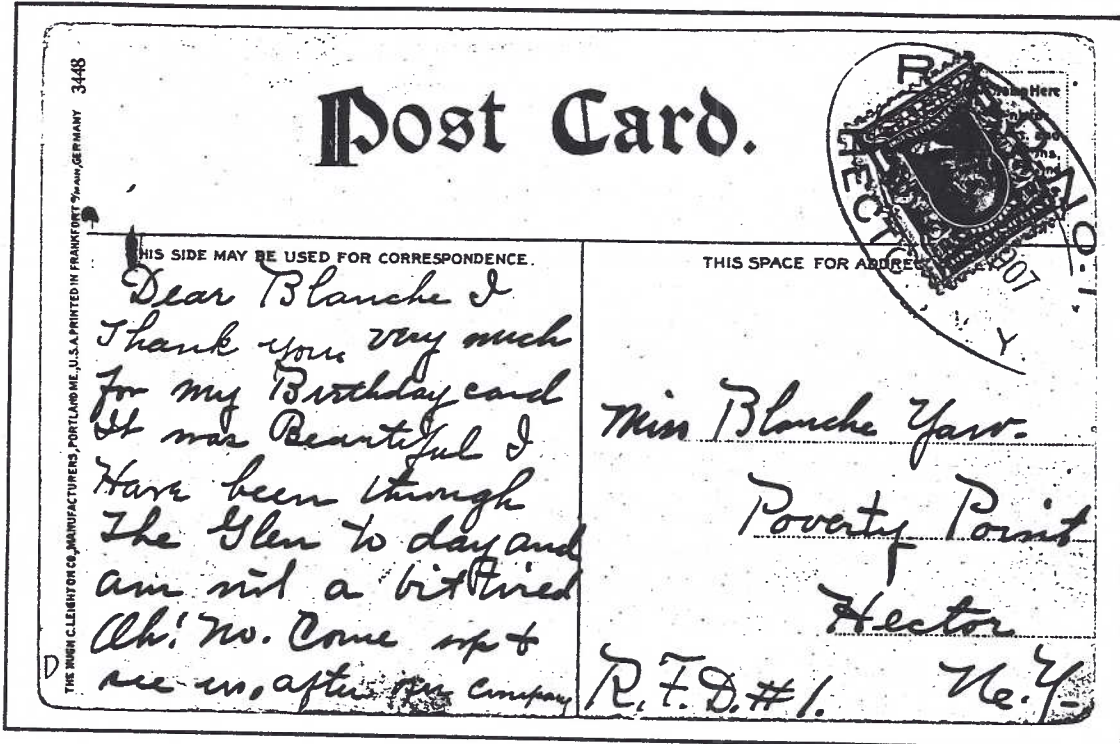 3448
THE HUGH C. LEIGHTON CO., MANUFACTURERS, PORTLAND ME., U.S.A. PRINTED IN FRANKFORT o/MAIN, GERMANY
Post Card.
R
HECTO
NO. 1,
Y.
1907
Here
HIS SIDE MAY BE USED FOR CORRESPONDENCE.
Dear Blanche I
Thank you very much
for my Birthday card
It was Beautiful I
Have been through
The Glen to day and
am not a bit tired
Oh! No. Come up &
see us, after our company
D
THIS SPACE FOR ADDRE
Miss Blanche Yaw.
Poverty Point
Hector
R.F.D. #1. Ne.Y-